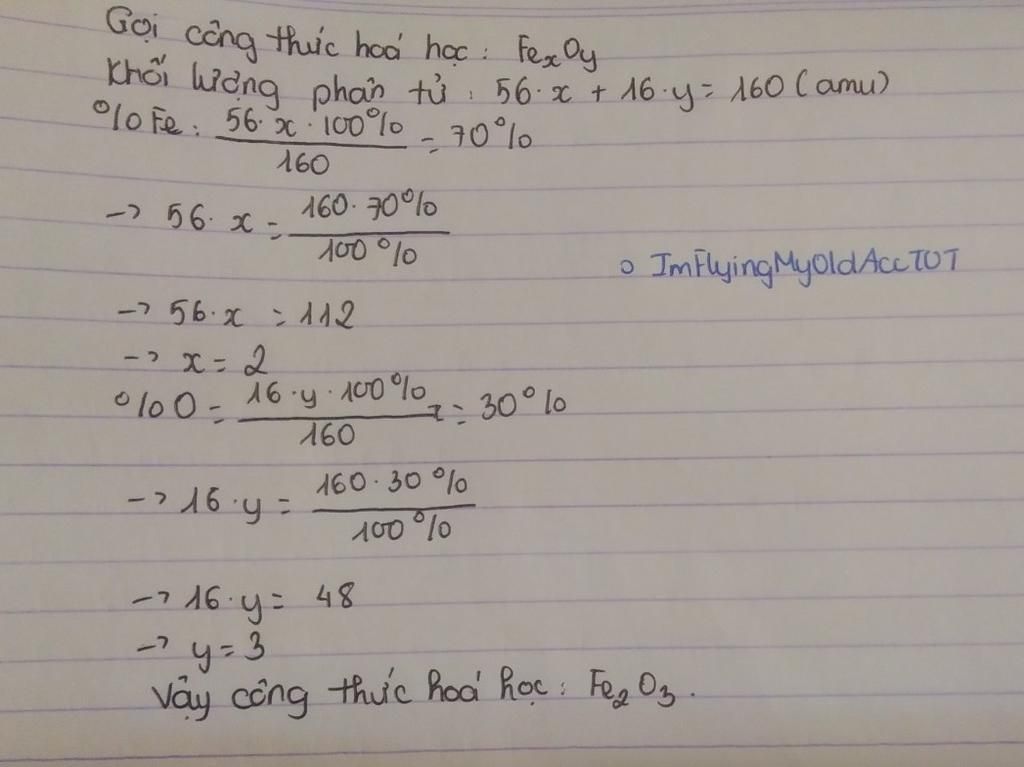 Gọi công thức hoá học: FeₓOy
Khối lượng phân tử: 56·x + 16·y = 160 (amu)
%Fe: 56·x·100% / 160 = 70%
→ 56·x = 160·70% / 100%
o ImFlyingMyOldAccTOT
→ 56·x = 112
→ x = 2
%O = 16·y·100% / 160 = 30%
→ 16·y = 160·30% / 100%
→ 16·y = 48
→ y = 3
Vậy công thức hoá học: Fe₂O₃.